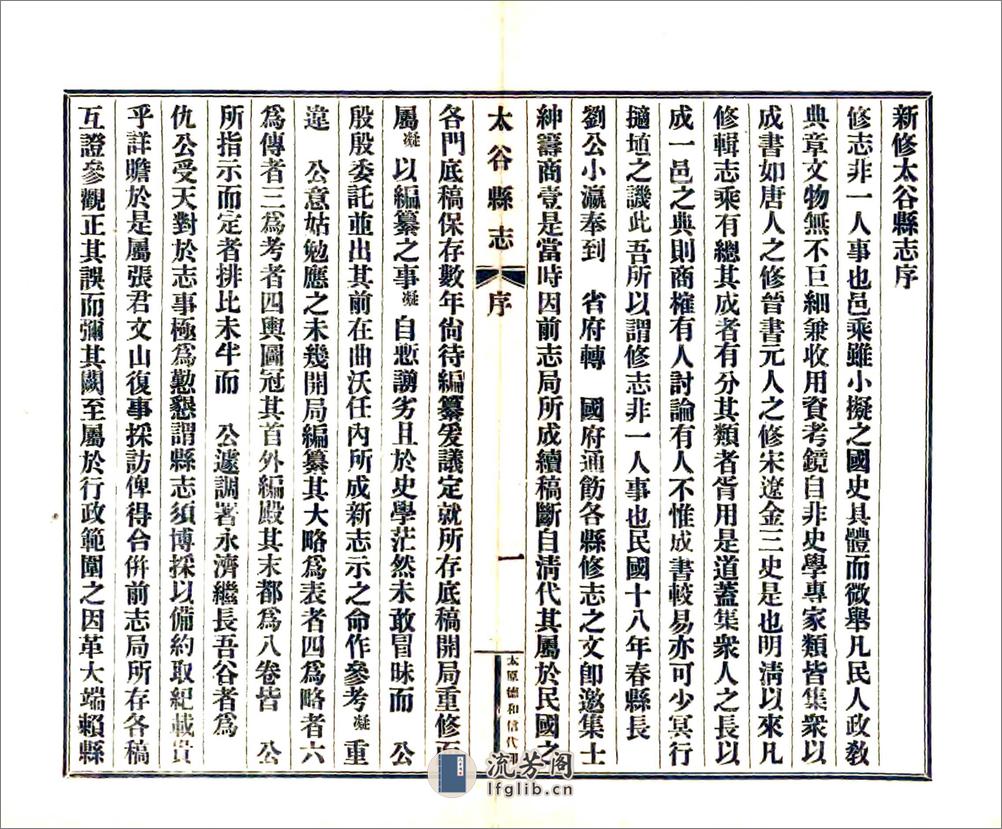 新修太谷縣志序
修志非一人事也邑乘雖小擬之國史具體而微舉凡民人政敎
典章文物無不巨細兼收用資考鏡自非史學專家類皆集衆以
成書如唐人之修晉書元人之修宋遼金三史是也明清以來凡
修輯志乘有總其成者有分其類者胥用是道蓋集衆人之長以
成一邑之典則商榷有人討論有人不惟成書較易亦可少冥行
擿埴之譏此吾所以謂修志非一人事也民國十八年春縣長
劉公小瀛奉到 省府轉 國府通飭各縣修志之文卽邀集士
紳籌商壹是當時因前志局所成續稿斷自清代其屬於民國之
太谷縣志 序 一 太原德和信代印
各門底稿保存數年尙待編纂爰議定就所存底稿開局重修而
屬凝以編纂之事凝自慙謭劣且於史學茫然未敢冒昧而 公
殷殷委託並出其前在曲沃任內所成新志示之命作參考凝重
違 公意姑勉應之未幾開局編纂其大略為表者四為略者六
為傳者三為考者四輿圖冠其首外編殿其末都為八卷皆 公
所指示而定者排比未半而 公遽調署永濟繼長吾谷者為
仇公受天對於志事極為懃懇謂縣志須博採以備約取紀載貴
乎詳贍於是屬張君文山復事採訪俾得合併前志局所存各稿
互證參觀正其誤而彌其闕至屬於行政範圍之因革大端賴縣
流芳閣
lfglib.cn